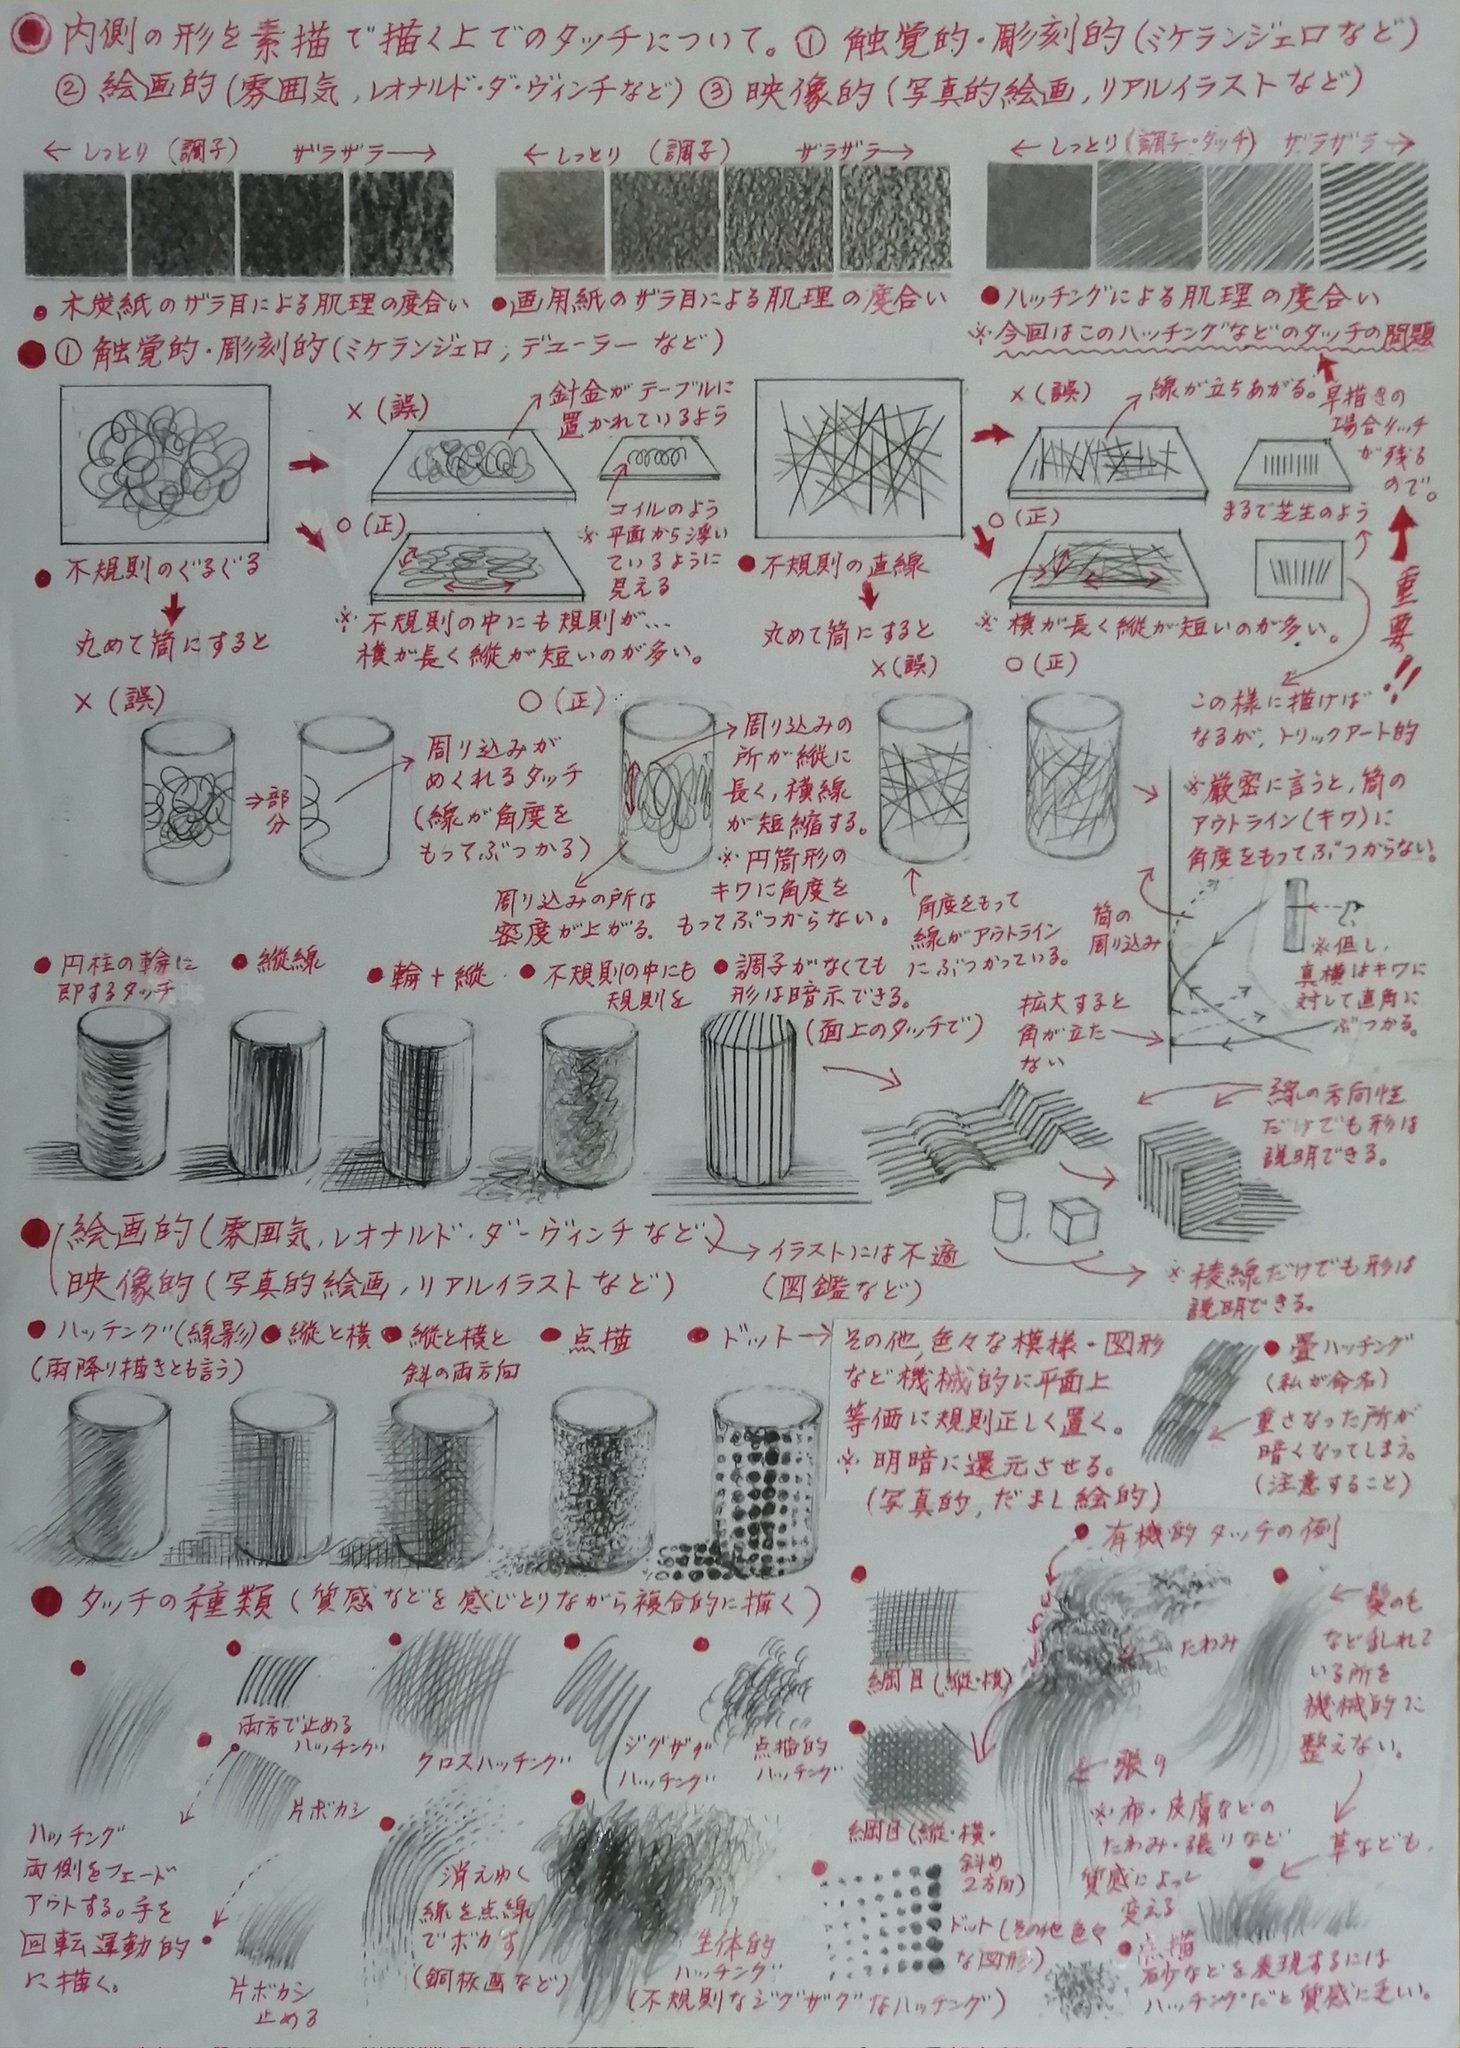 内側の形を素描で描く上でのタッチについて。① 触覚的・彫刻的(ミケランジェロなど)
② 絵画的(雰囲気,レオナルド・ダ・ヴィンチなど) ③ 映像的(写真的絵画,リアルイラストなど)
← しっとり (調子) ザラザラ →
← しっとり (調子) ザラザラ →
← しっとり (調子・タッチ) ザラザラ →
木炭紙のザラ目による肌理の度合い
画用紙のザラ目による肌理の度合い
ハッチングによる肌理の度合い
※今回はこのハッチングなどのタッチの問題
① 触覚的・彫刻的(ミケランジェロ,デューラーなど)
×(誤)
針金がテーブルに
置かれているよう
コイルのよう
※平面から浮い
ているように
見える
○(正)
不規則のぐるぐる
丸めて筒にすると
※不規則の中にも規則が…
横が長く縦が短いのが多い。
×(誤)
線が立ちあがる。
早描きの
場合タッチ
が残る
ので。
重要!!
まるで芝生のよう
○(正)
不規則の直線
丸めて筒にすると
※横が長く縦が短いのが多い。
この様に描けば
なるが、トリックアート的
×(誤)
⇒部分
周り込みが
めくれるタッチ
(線が角度を
もってぶつかる)
○(正)
周り込みの
所が縦に
長く,横線
が短縮する。
※円筒形の
キワに角度を
もってぶつからない。
周り込みの所は
密度が上がる。
×(誤)
○(正)
角度をもって
線がアウトライン
にぶつかっている。
※厳密に言うと,筒の
アウトライン(キワ)に
角度をもってぶつからない。
筒の
周り込み
※但し,
真横はキワに
対して直角に
ぶつかる。
拡大すると
角が立た
ない
円柱の輪に
即するタッチ
縦線
輪+縦
不規則の中にも
規則を
調子がなくても
形は暗示できる。
(面上のタッチで)
線の方向性
だけでも形は
説明できる。
※稜線だけでも形は
説明できる。
絵画的(雰囲気,レオナルド・ダ・ヴィンチなど)
映像的(写真的絵画,リアルイラストなど)
イラストには不適
(図鑑など)
ハッチング(線影)
(雨降り描きとも言う)
縦と横
縦と横と
斜の両方向
点描
ドット→
その他,色々な模様・図形
など機械的に平面上
等価に規則正しく置く。
※明暗に還元させる。
(写真的,だまし絵的)
畳ハッチング
(私が命名)
重さなった所が
暗くなってしまう。
(注意すること)
タッチの種類(質感などを感じとりながら複合的に描く)
ハッチング
両側をフェード
アウトする。手を
回転運動的
に描く。
両方で止める
ハッチング
片ボカシ
片ボカシ
止める
クロスハッチング
ジグザグ
ハッチング
点描的
ハッチング
消えゆく
線を点線
でボカす
(銅板画など)
生体的
ハッチング
(不規則なジグザグなハッチング)
網目(縦・横)
網目(縦・横・
斜め
2方向)
ドット(その他色々
な図形)
有機的タッチの例
たわみ
張り
※布・皮膚などの
たわみ・張りなど
質感によって
変える
髪の毛
など乱れて
いる所を
機械的に
整えない。
草なども,
点描
砂などを表現するには
ハッチングだと質感に乏い。